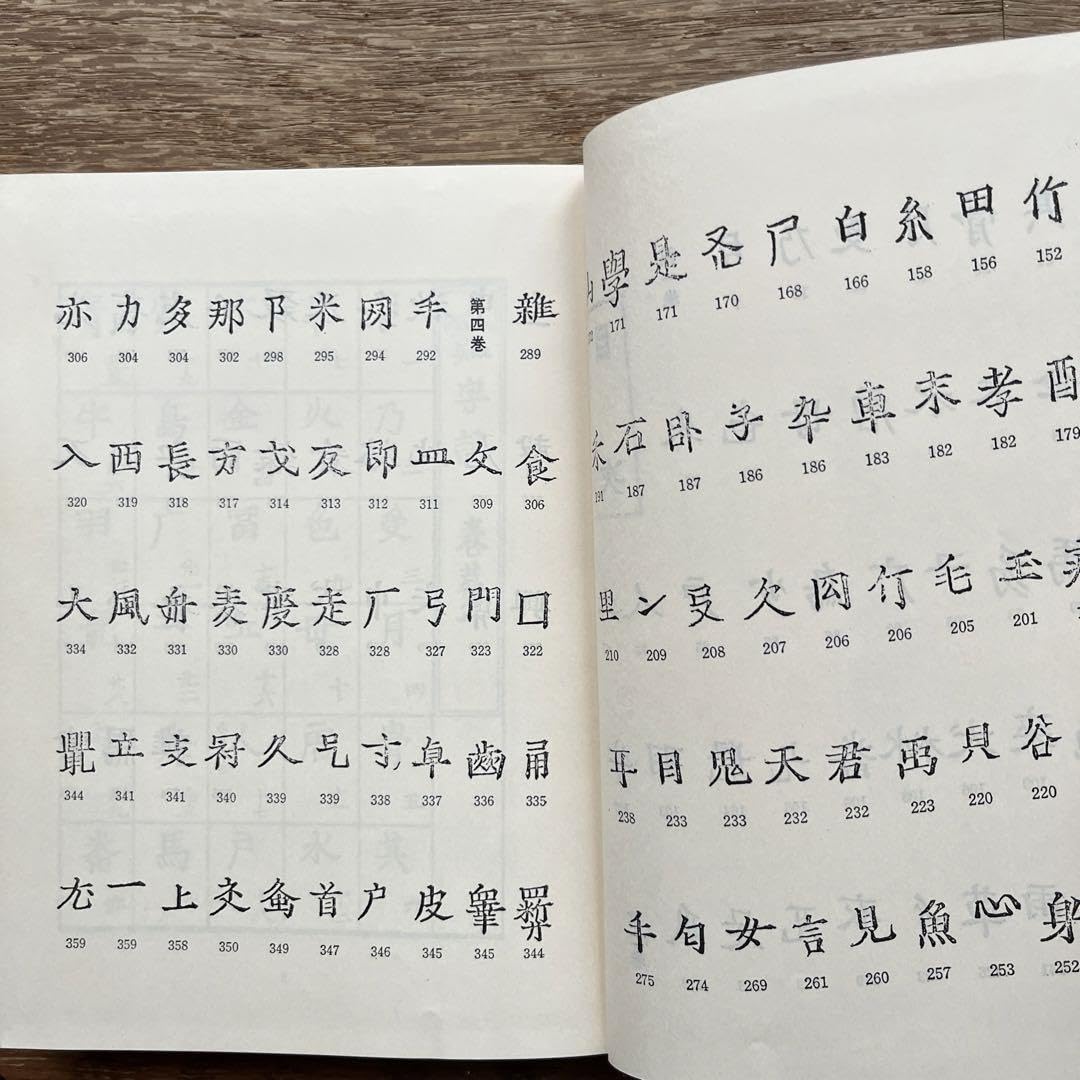 竹 田 糸 白 尸 是 學
152 156 158 166 168 170 171 171
酉 孝 末 車 卆 子 卧 石 糸
179 182 182 183 186 186 187 187 191
毛 欠 ン 里
201 205 206 206 207 208 209 210
谷 貝 禹 君 天 鬼 目 耳
220 220 223 232 232 233 233 238
身 心 魚 見 言 女 手
252 253 257 260 261 269 274 275
雜 第四巻 手 网 米 卩 那 多 力 亦
289 292 294 295 298 302 304 304 306
食 文 皿 即 戈 方 長 西 入
306 309 311 312 313 314 317 318 319 320
口 門 弓 厂 走 麦 舟 風 大
322 323 327 328 328 330 330 331 332 334
齒 阜 寸 久 冠 支 立
335 336 337 338 339 339 340 341 341 344
皮 户 首 上 一 尢
344 345 345 346 347 349 350 358 359 359